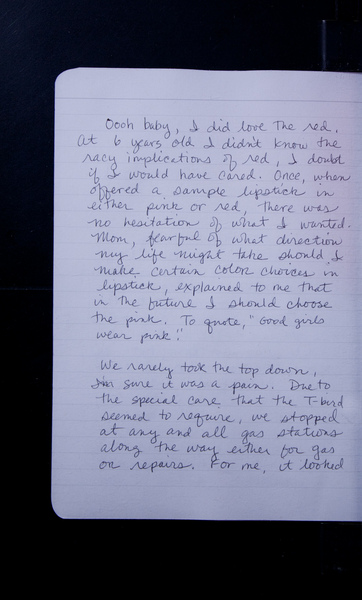 Oooh baby, I did love the red.
At 6 years old I didn't know the
racy implications of red, I doubt
if I would have cared. Once, when
offered a sample lipstick in
either pink or red, there was
no hesitation of what I wanted.
Mom, fearful of what direction
my life might take should I
make certain color choices in
lipstick, explained to me that
in the future I should choose
the pink. To quote, "Good girls
wear pink."
We rarely took the top down,
I'm sure it was a pain. Due to
the special care that the T-bird
seemed to require, we stopped
at any and all gas stations
along the way either for gas
or repairs. For me, it looked